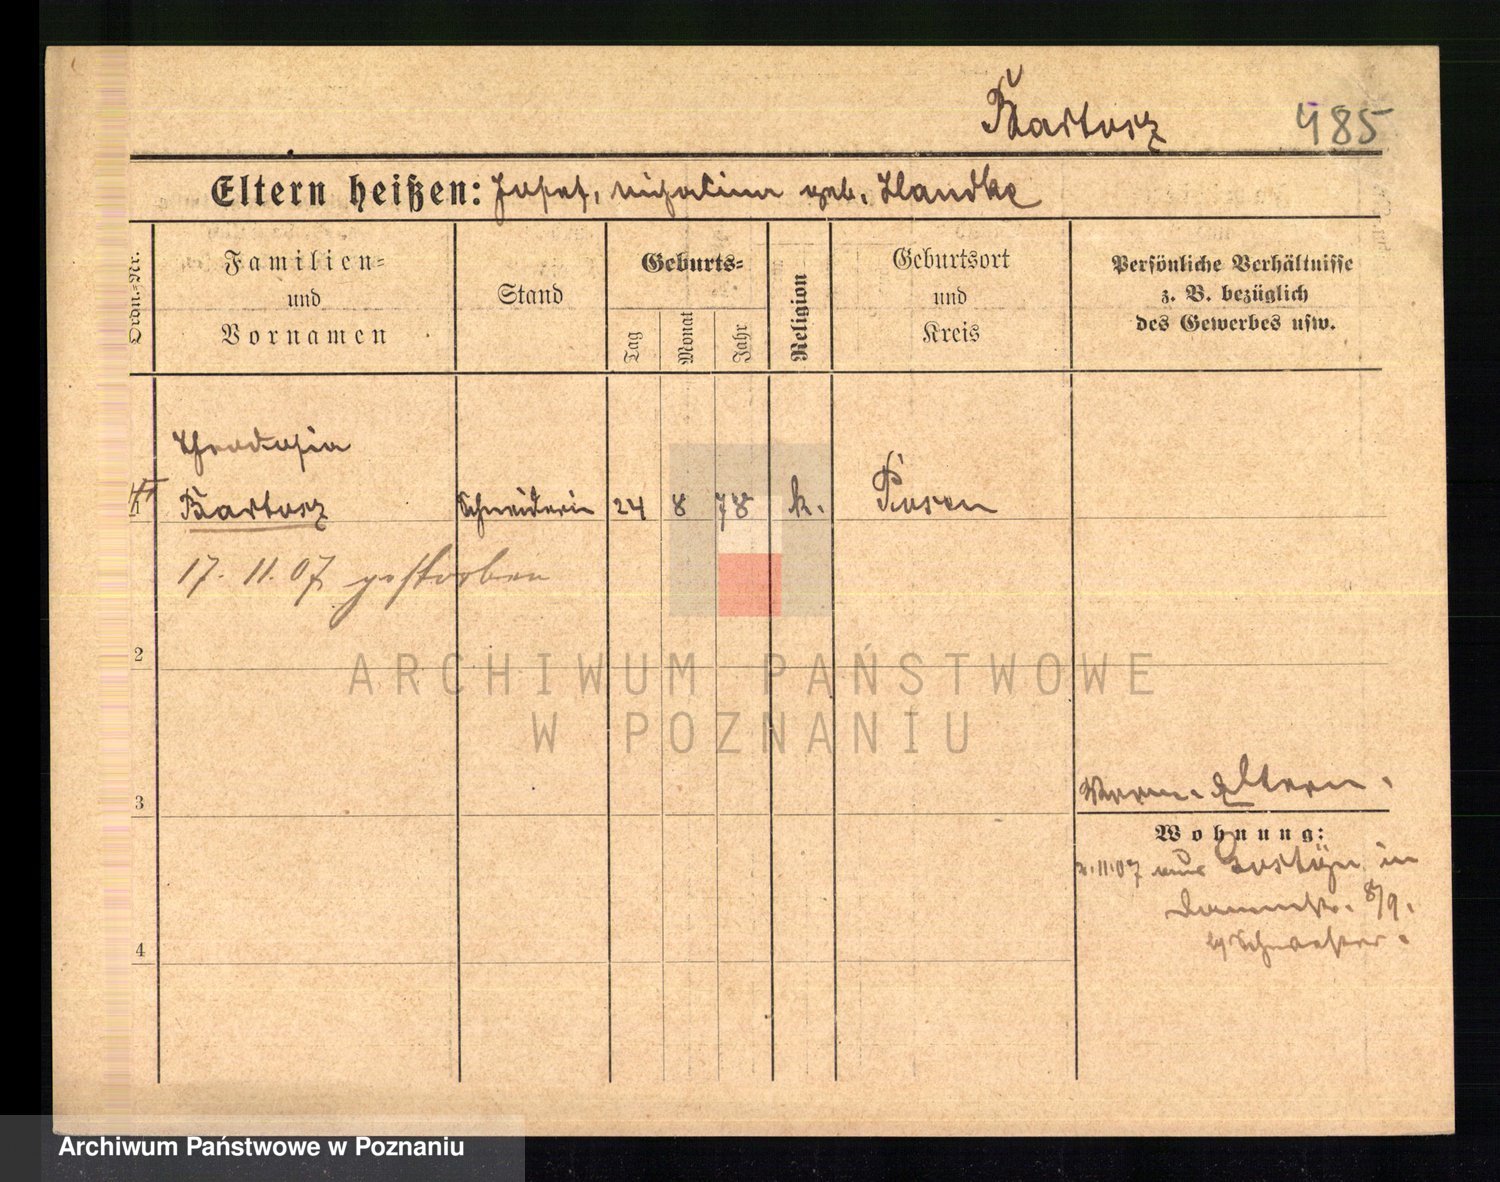 Bartosz 485
Eltern heißen: Josef, Michalina geb. Handke
Ordn.-Nr.
Familien-
und
Vornamen
Stand
Geburts-
Tag
Monat
Jahr
Religion
Geburtsort
und
Kreis
Persönliche Verhältnisse
z. B. bezüglich
des Gewerbes usw.
Theodosia
Bartosz Schneiderin 24 8 78 k. Posen
17. 11. 07 gestorben
2
ARCHIWUM PAŃSTWOWE
W POZNANIU
3
Eltern.
Wohnung:
2.11.07 aus Gostÿn in
Dammstr. 8/9.
b/Schwester.
4
Archiwum Państwowe w Poznaniu